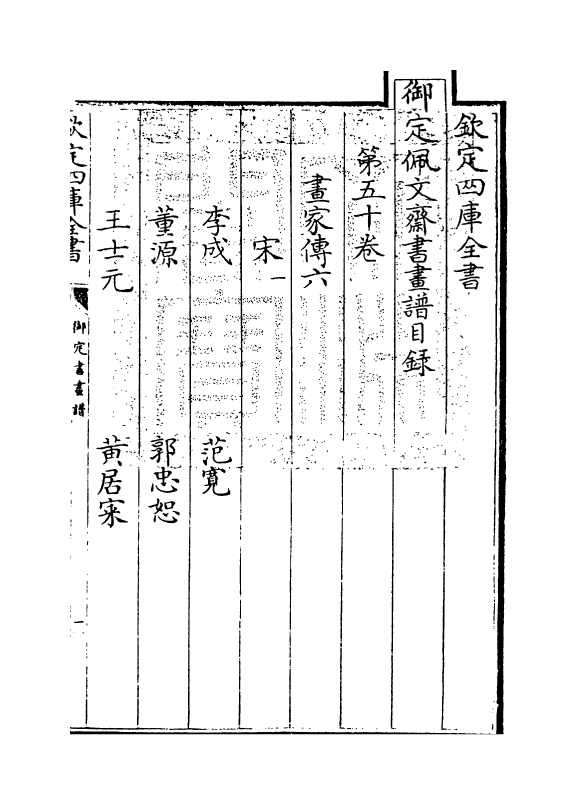 欽定四庫全書
御定佩文齋書畫譜目録
第五十卷
畫家傳六
宋一
李成 范寛
董源 郭忠恕
王士元 黄居寀
欽定四庫全書 御定書畫譜 一